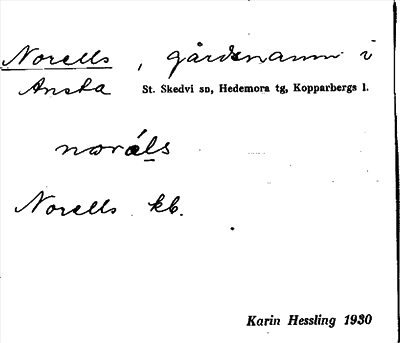 Norells, gårdsnamn i
Ansta St. Skedvi sn, Hedemora tg, Kopparbergs l.
noráls
Norells kb.
Karin Hessling 1930